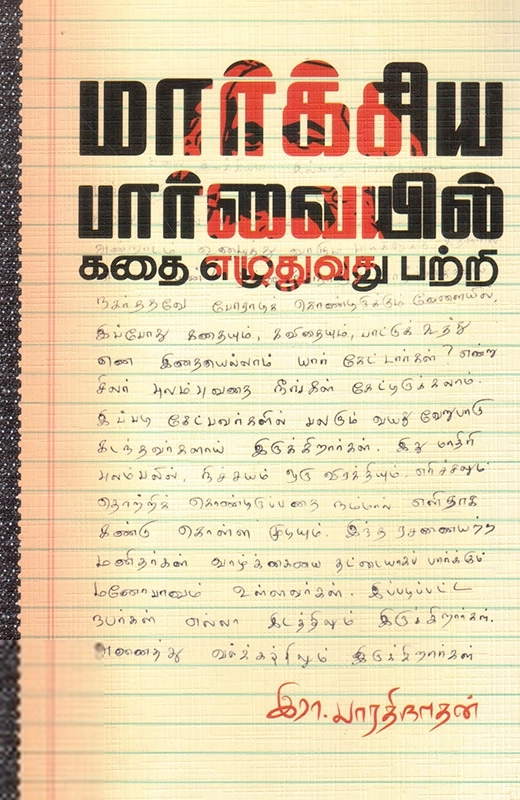 மார்க்சிய
பார்வையில்
கதை எழுதுவது பற்றி
நகர்த்தவே போராடிக் கொண்டிருக்கும் வேளையில்,
இப்போது கதையும், கவிதையும், பாட்டுக் கூத்து
என இதையெல்லாம் யார் கேட்டார்கள்? என்று
சிலர் புலம்புவதை நீங்கள் கேட்டிருக்கலாம்.
இப்படி கேட்பவர்களில் பலரும் வயது வேறுபாடு
கடந்தவர்களாய் இருக்கிறார்கள். இது மாதிரி
புலம்பலில், நிச்சயம் ஒரு விரக்தியும், எரிச்சலும்
தொற்றிக் கொண்டிருப்பதை நம்மால் எளிதாக
கண்டு கொள்ள முடியும். இந்த ரசனையற்ற
மனிதர்கள் வாழ்க்கையை தட்டையாகப் பார்க்கும்
மனோபாவம் உள்ளவர்கள். இப்படிப்பட்ட
நபர்கள் எல்லா இடத்திலும் இருக்கிறார்கள்.
அனைத்து வர்க்கத்திலும் இருக்கிறார்கள்
இரா. பாரதிநாதன்